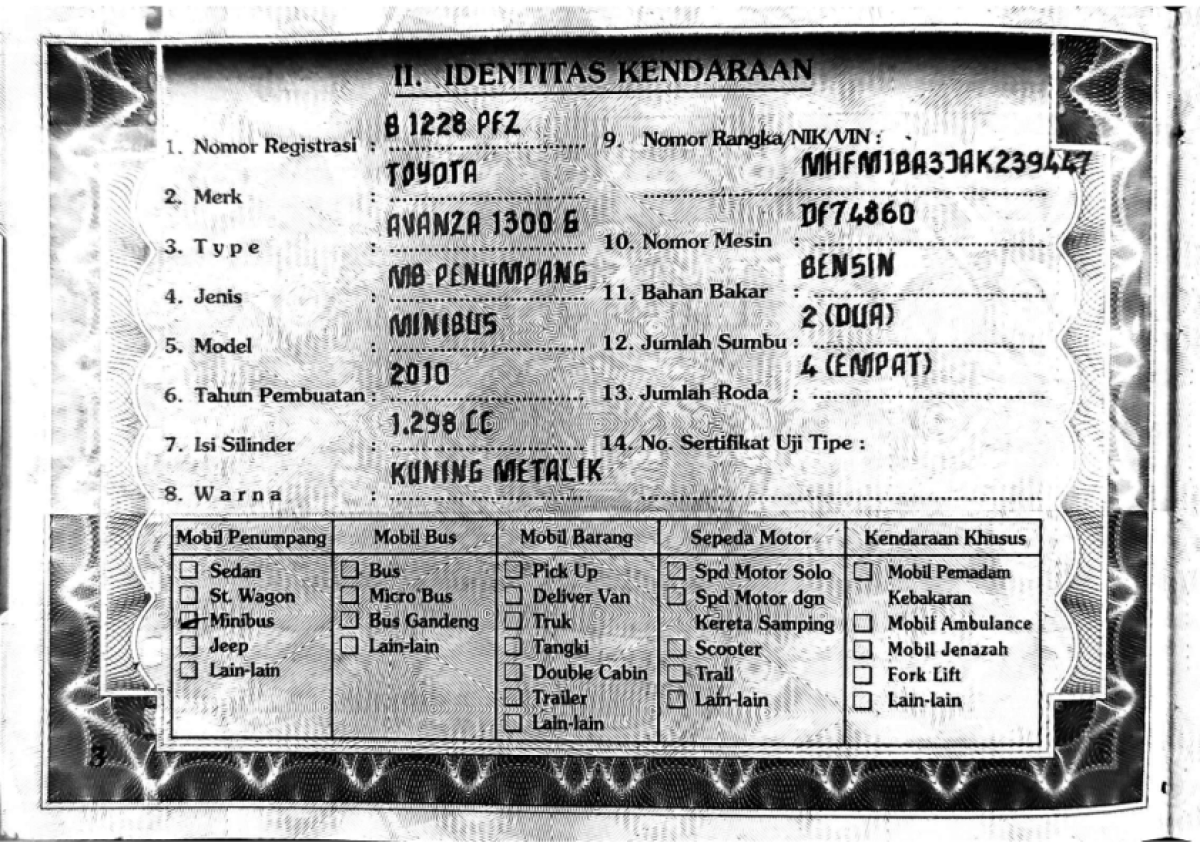 II. IDENTITAS KENDARAAN
1. Nomor Registrasi : B 1228 PFZ
2. Merk : TOYOTA
3. Type : AVANZA 1300 G
4. Jenis : MB PENUMPANG
5. Model : MINIBUS
6. Tahun Pembuatan : 2010
7. Isi Silinder : 1.298 CC
8. Warna : KUNING METALIK
9. Nomor Rangka/NIK/VIN :
MHFM1BA3JAK239447
10. Nomor Mesin : DF74860
11. Bahan Bakar : BENSIN
12. Jumlah Sumbu : 2 (DUA)
13. Jumlah Roda : 4 (EMPAT)
14. No. Sertifikat Uji Tipe :
Mobil Penumpang
Sedan
St. Wagon
Minibus
Jeep
Lain-lain
Mobil Bus
Bus
Micro Bus
Bus Gandeng
Lain-lain
Mobil Barang
Pick Up
Deliver Van
Truk
Tangki
Double Cabin
Trailer
Lain-lain
Sepeda Motor
Spd Motor Solo
Spd Motor dgn
Kereta Samping
Scooter
Trail
Lain-lain
Kendaraan Khusus
Mobil Pemadam
Kebakaran
Mobil Ambulance
Mobil Jenazah
Fork Lift
Lain-lain
3